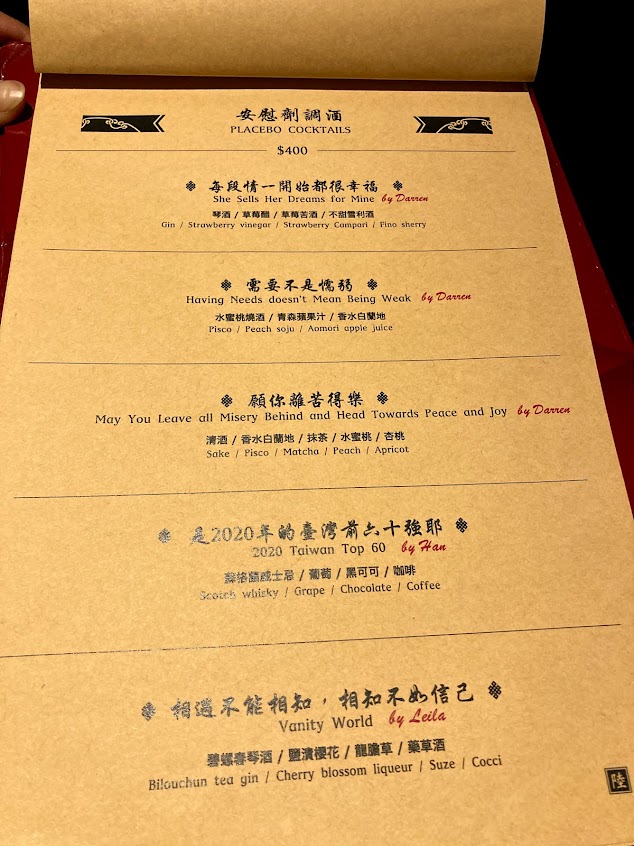 安慰劑調酒
PLACEBO COCKTAILS
$400
每段情一開始都很幸福
She Sells Her Dreams for Mine by Darren
琴酒 / 草莓醋 / 草莓苦酒 / 不甜雪利酒
Gin / Strawberry vinegar / Strawberry Campari / Fino sherry
需要不是懦弱
Having Needs doesn't Mean Being Weak by Darren
水蜜桃燒酒 / 青森蘋果汁 / 香水白蘭地
Pisco / Peach soju / Aomori apple juice
願你離苦得樂
May You Leave all Misery Behind and Head Towards Peace and Joy by Darren
清酒 / 香水白蘭地 / 抹茶 / 水蜜桃 / 杏桃
Sake / Pisco / Matcha / Peach / Apricot
是2020年的臺灣前六十強耶
2020 Taiwan Top 60 by Han
蘇格蘭威士忌 / 葡萄 / 黑可可 / 咖啡
Scotch whisky / Grape / Chocolate / Coffee
相遇不能相知，相知不如信己
Vanity World by Leila
碧螺春琴酒 / 鹽漬櫻花 / 龍膽草 / 藥草酒
Bilouchun tea gin / Cherry blossom liqueur / Suze / Cocci
陸